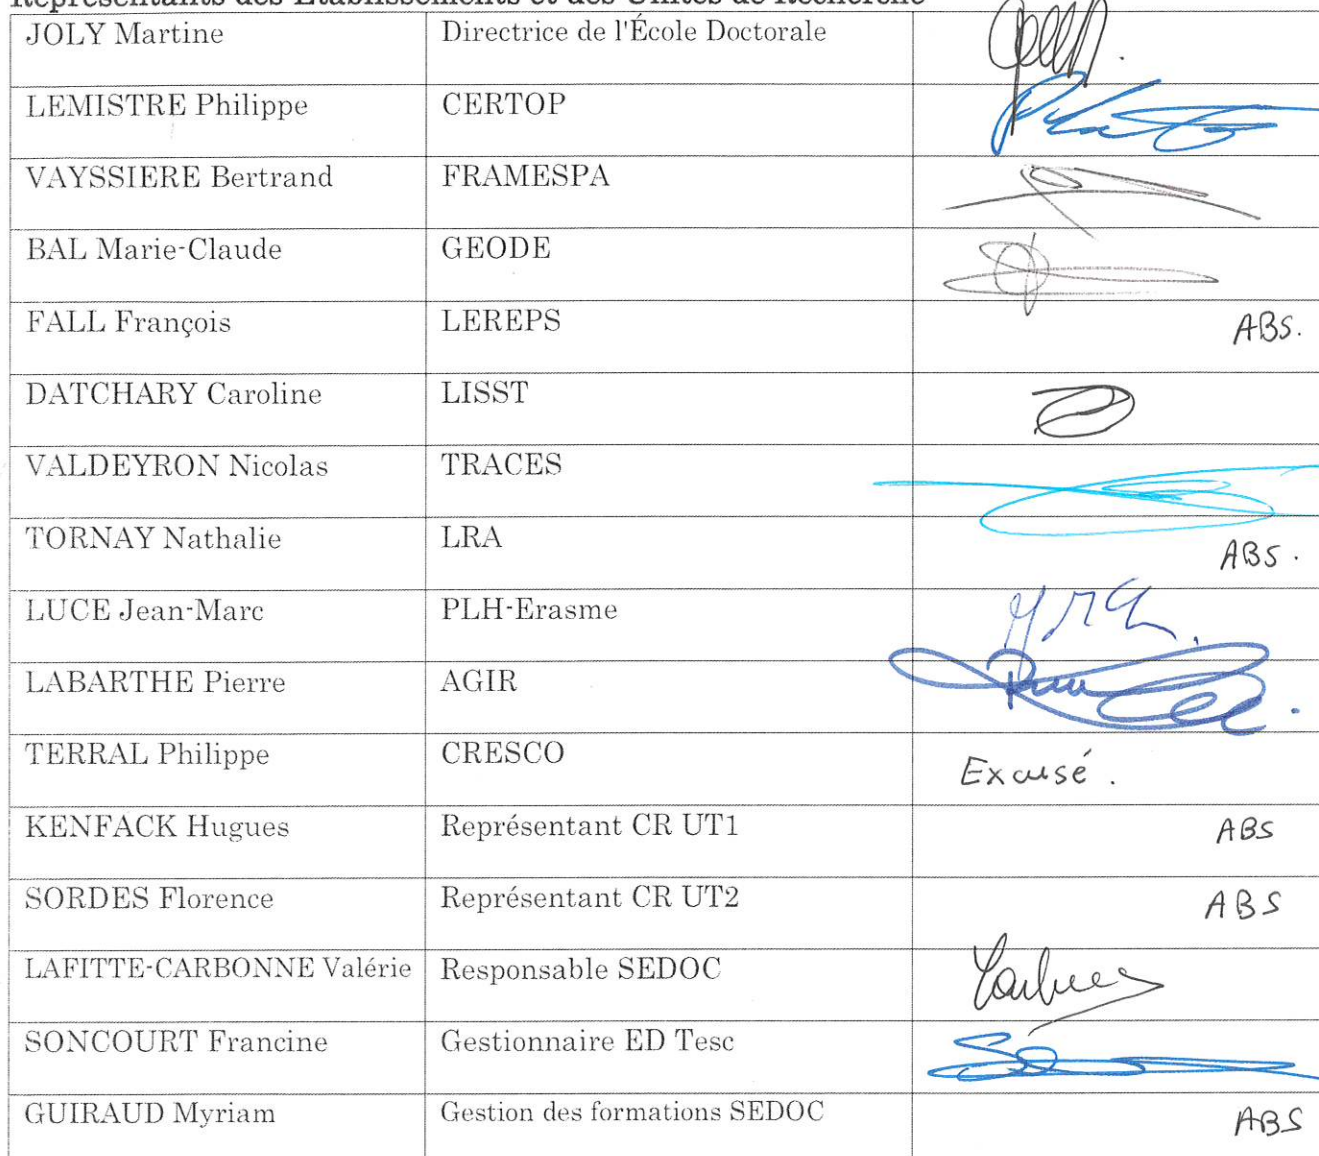 Représentants des Établissements et des Unités de Recherche
JOLY Martine Directrice de l'École Doctorale
LEMISTRE Philippe CERTOP
VAYSSIERE Bertrand FRAMESPA
BAL Marie-Claude GEODE
FALL François LEREPS ABS.
DATCHARY Caroline LISST
VALDEYRON Nicolas TRACES
TORNAY Nathalie LRA ABS.
LUCE Jean-Marc PLH-Erasme
LABARTHE Pierre AGIR
TERRAL Philippe CRESCO Excusé.
KENFACK Hugues Représentant CR UT1 ABS
SORDES Florence Représentant CR UT2 ABS
LAFITTE-CARBONNE Valérie Responsable SEDOC
SONCOURT Francine Gestionnaire ED Tesc
GUIRAUD Myriam Gestion des formations SEDOC ABS